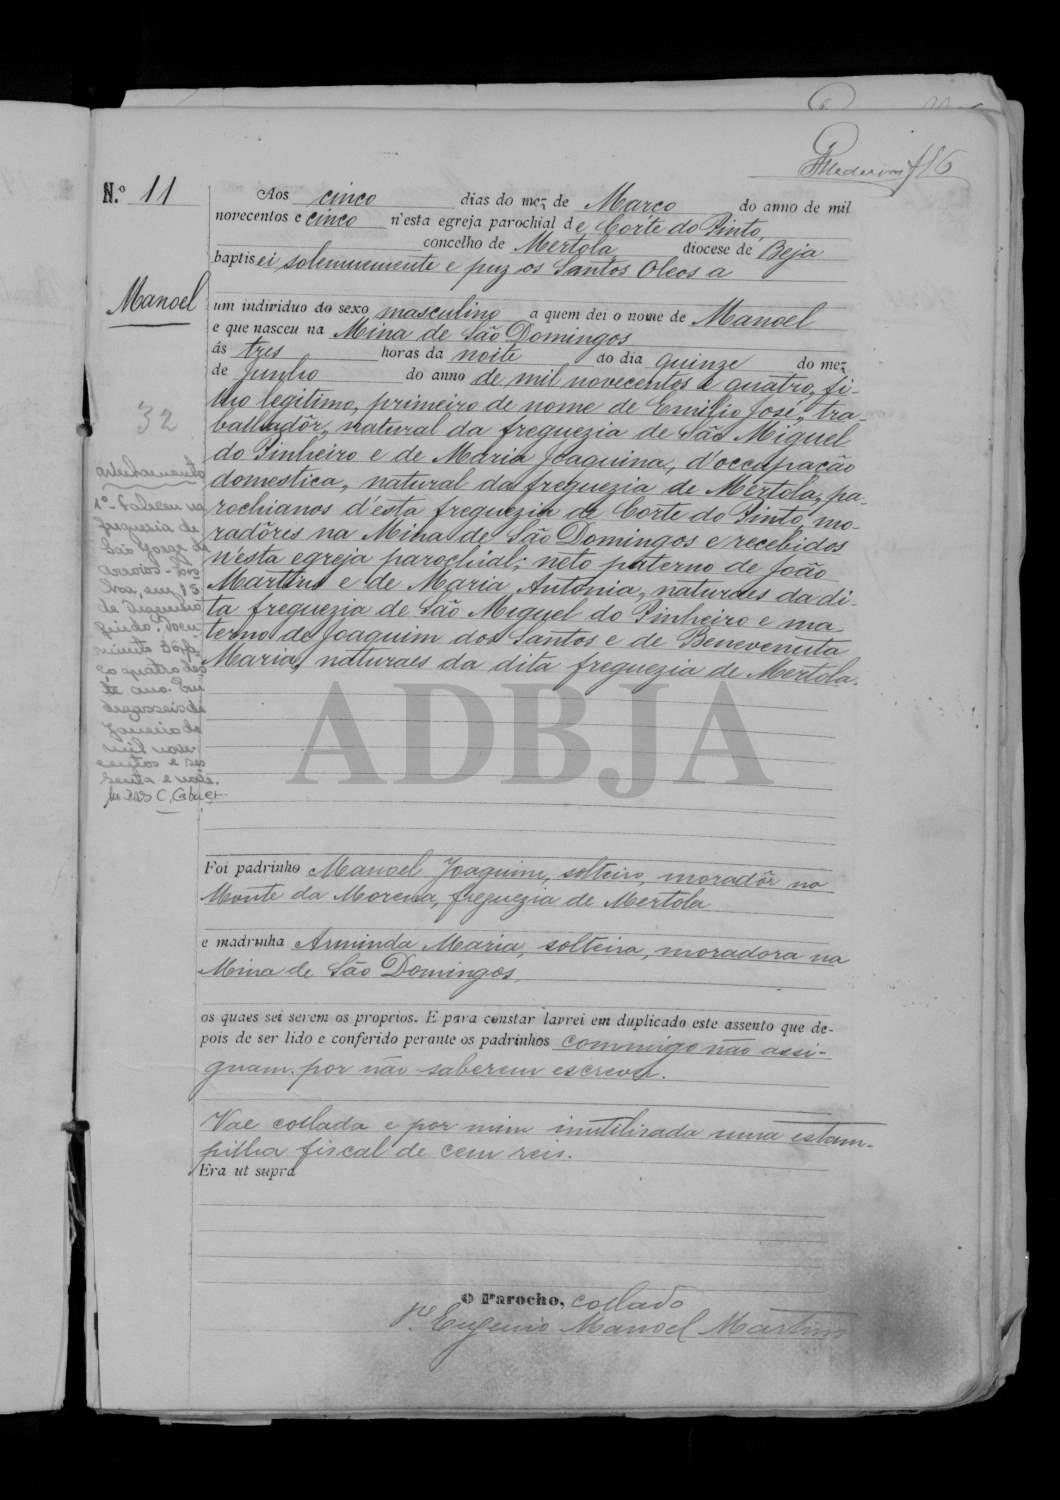 Medeiros f 16
N.º 11
Aos cinco dias do mez de Março do anno de mil
novecentos e cinco n'esta egreja parochial de Corte do Pinto,
concelho de Mertola diocese de Beja
baptisei solemnemente e puz os Santos Oleos a
Manoel
um individuo do sexo masculino a quem dei o nome de Manoel
e que nasceu na Mina de São Domingos
ás tres horas da noite do dia quinze do mez
de Junho do anno de mil novecentos e quatro, fi-
lho legitimo, primeiro de nome de Emilio José, tra-
balhadôr, natural da freguezia de São Miguel
do Pinheiro e de Maria Joaquina, d'occupação
domestica, natural da freguezia de Mertola, pa-
rochianos d'ésta freguezia de Corte do Pinto, mo-
radôres na Mina de São Domingos e recebidos
n'esta egreja parochial; neto paterno de João
Martins e de Maria Antonia, naturaes da di-
ta freguezia de São Miguel do Pinheiro e ma-
terno de Joaquim dos Santos e de Benevenuta
Maria, naturaes da dita freguezia de Mertola.
32
Averbamento
1º Faleceu na
freguesia de
São Jorge de
Arroios - Lis-
boa, em 15
de Dezembro
findo. Docu-
mento
quatro des-
te ano. Em
dezasseis de
Janeiro de
mil nove-
centos e ses-
senta e nove.
ADBJA
Foi padrinho Manoel Joaquim, solteiro, moradôr no
Monte da Morena, freguezia de Mertola
e madrinha Arminda Maria, solteira, moradora na
Mina de São Domingos,
os quaes sei serem os proprios. E para constar lavrei em duplicado este assento que de-
pois de ser lido e conferido perante os padrinhos commigo não assi-
gnam por não saberem escrever.
Vae collada e por mim inutilisada uma estam-
pilha fiscal de cem reis.
Era ut supra
O Parocho, collado
P.e Eugenio Manoel Martins